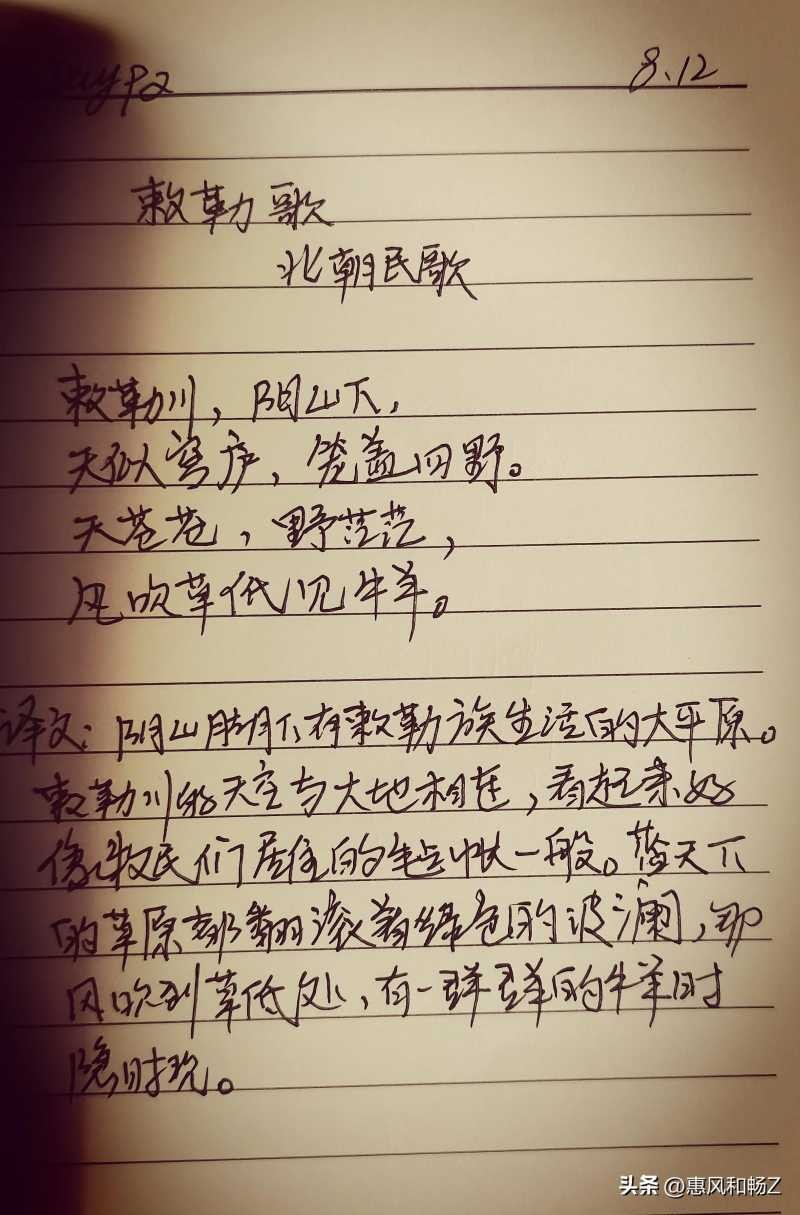 8.12
敕勒歌
北朝民歌
敕勒川，阴山下，
天似穹庐，笼盖四野。
天苍苍，野茫茫，
风吹草低见牛羊。
译文：阴山脚下有敕勒族生活的大平原。
敕勒川的天空与大地相连，看起来好
像牧民们居住的毡帐一般。蓝天下
的草原都翻滚着绿色的波澜，那
风吹到草低处，有一群群的牛羊时
隐时现。
头条 @惠风和畅Z